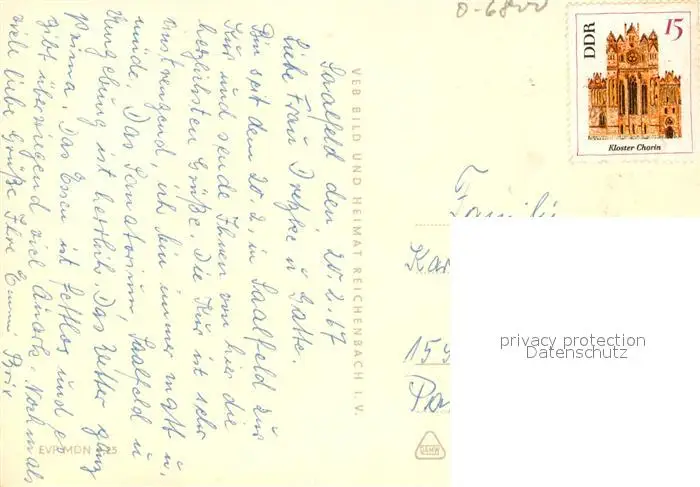 Saalfeld den 20.2.67
Liebe Frau u Gatte.
Bin seit dem 20.2. in Saalfeld zur
Kur und sende Ihnen von hier die
herzlichsten Grüße. Die Kur ist sehr
anstrengend, ich bin immer matt u.
müde. Das Sanatorium, Saalfeld u
Umgebung ist herrlich. Das Wetter ganz
prima. Das Essen ist fettlos und es
gibt überwiegend viel Quark. Nochmals
viele liebe Grüße Ihre Emmi Brix
VEB BILD UND HEIMAT REICHENBACH I. V.
EVP MDN 0,25
0-6800
DDR
15
Kloster Chorin
Familie
Kar
15
Po
privacy protection
Datenschutz